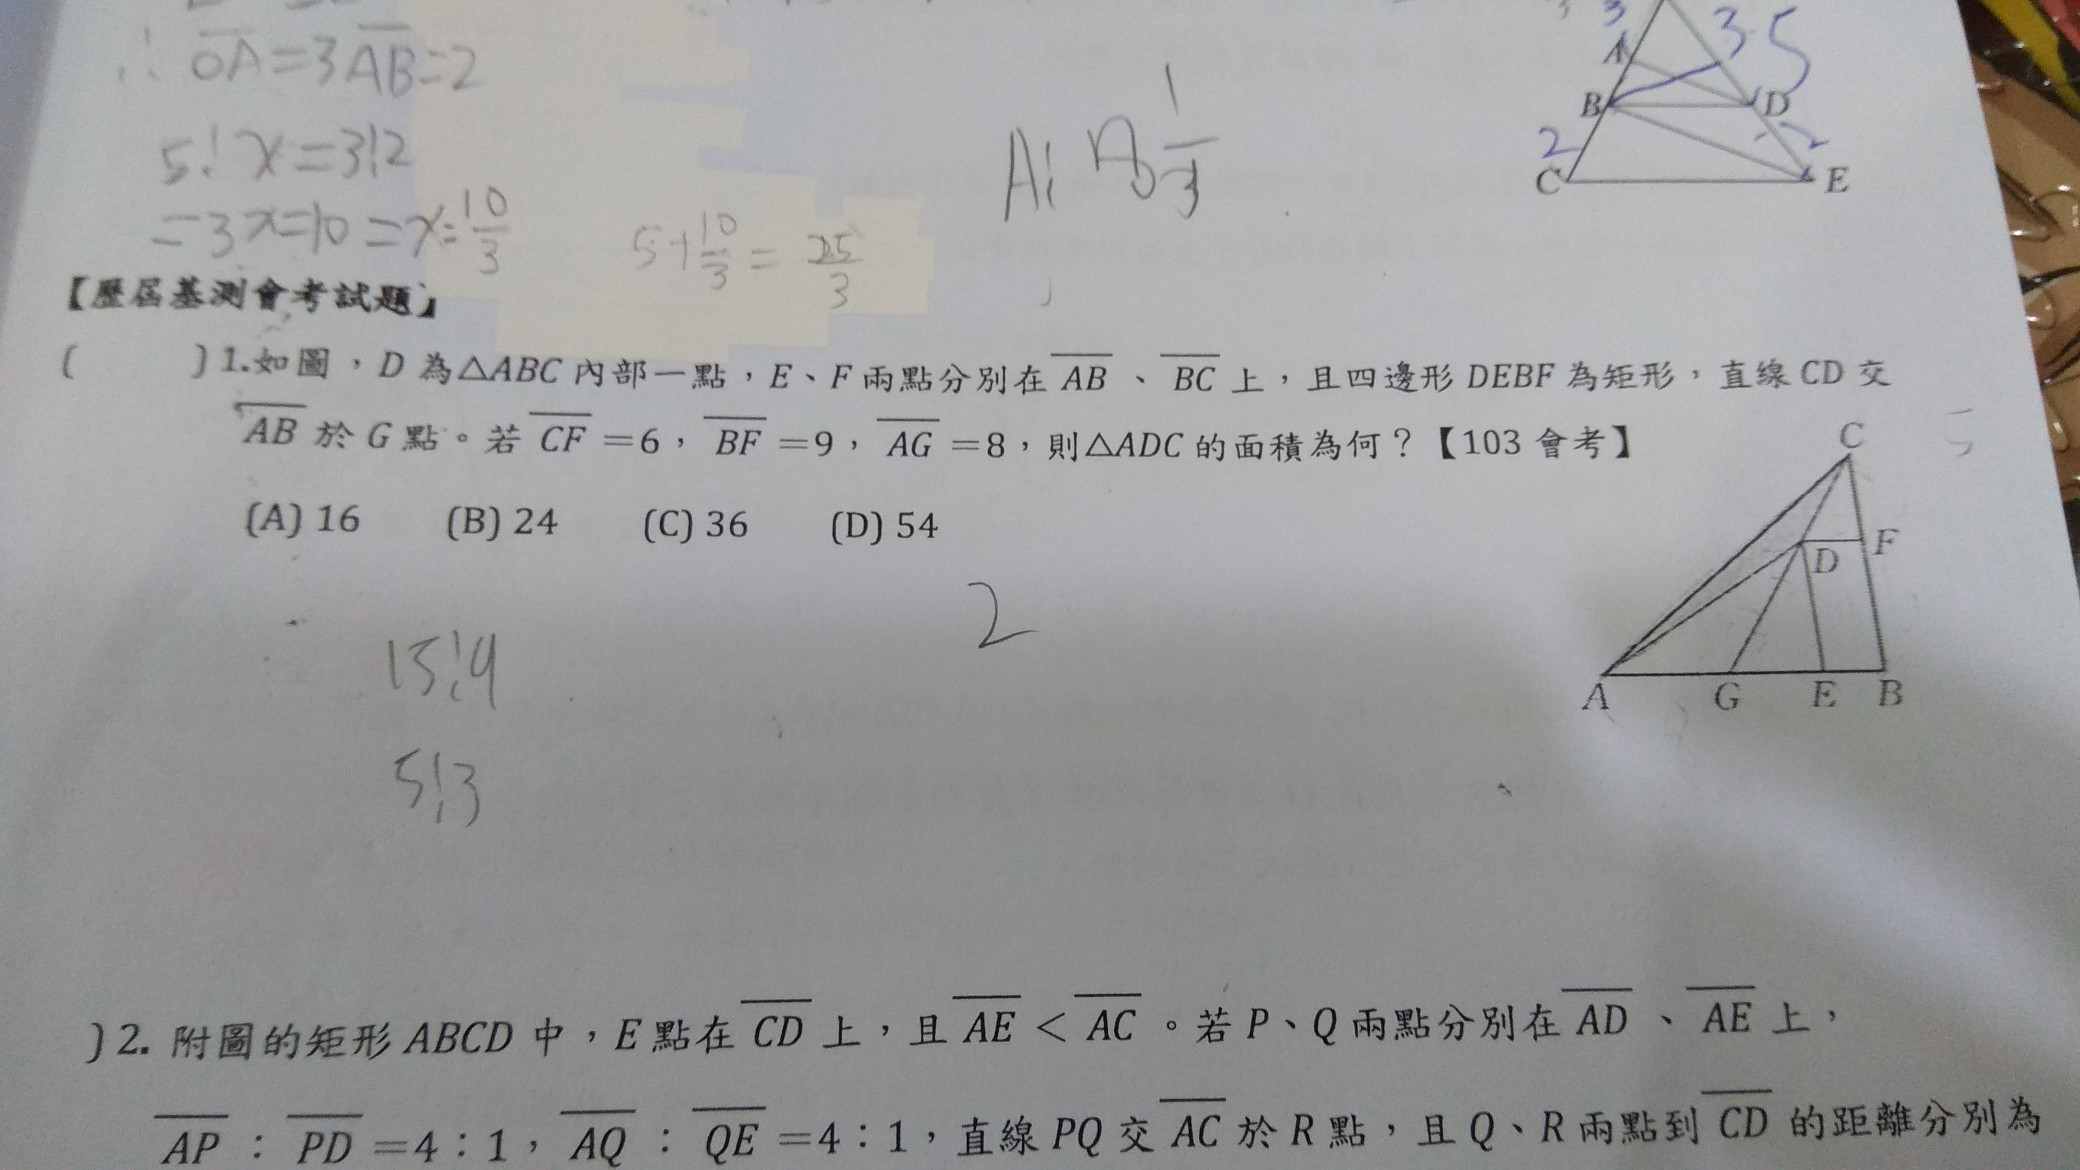 ∴ OA=3 AB=2
5:x=3:2
=3x=10=x=10/3
5+10/3=25/3
A: 8 1/3
3
3
5
A
B
D
2
2
C
E
【歷屆基測會考試題】
( )1.如圖，D 為△ABC 內部一點，E、F 兩點分別在 AB 、 BC 上，且四邊形 DEBF 為矩形，直線 CD 交
AB 於 G 點。若 CF =6， BF =9， AG =8，則△ADC 的面積為何？【103 會考】
(A) 16 (B) 24 (C) 36 (D) 54
5
C
F
D
A G E B
2
15:9
5:3
)2. 附圖的矩形 ABCD 中，E 點在 CD 上，且 AE < AC 。若 P、Q 兩點分別在 AD 、 AE 上，
AP : PD =4：1， AQ : QE =4：1，直線 PQ 交 AC 於 R 點，且 Q、R 兩點到 CD 的距離分別為